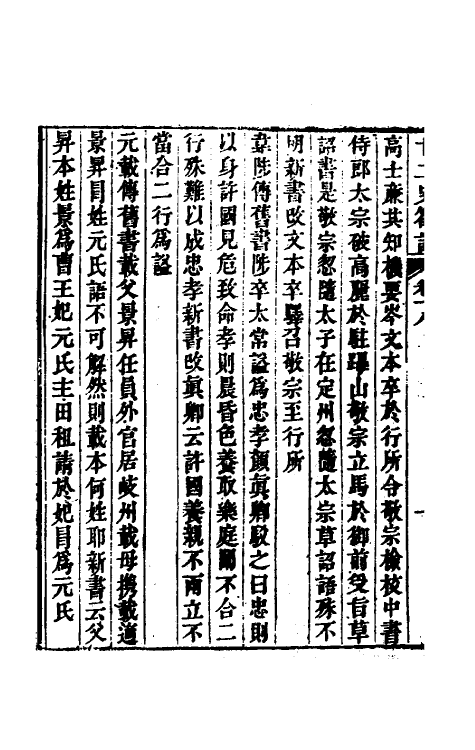 廿二史劄記 卷十八
高士廉共知機要岑文本卒於行所令敬宗檢校中書
侍郎太宗破高麗於駐蹕山敬宗立馬於御前受旨草
詔書是敬宗忽隨太子在定州忽隨太宗草詔語殊不
明新書改文本卒驛召敬宗至行所
韋陟傳舊書陟卒太常謚爲忠孝顏眞卿駁之曰忠則
以身許國見危致命孝則晨昏色養取樂庭闈不合二
行殊難以成忠孝新書改眞卿云許國養親不兩立不
當合二行爲謚
元載傳舊書載父景昇任員外官居岐州載母攜載適
景昇冒姓元氏語不可解然則載本何姓耶新書云父
昇本姓景爲曹王妃元氏主田租請於妃冒爲元氏